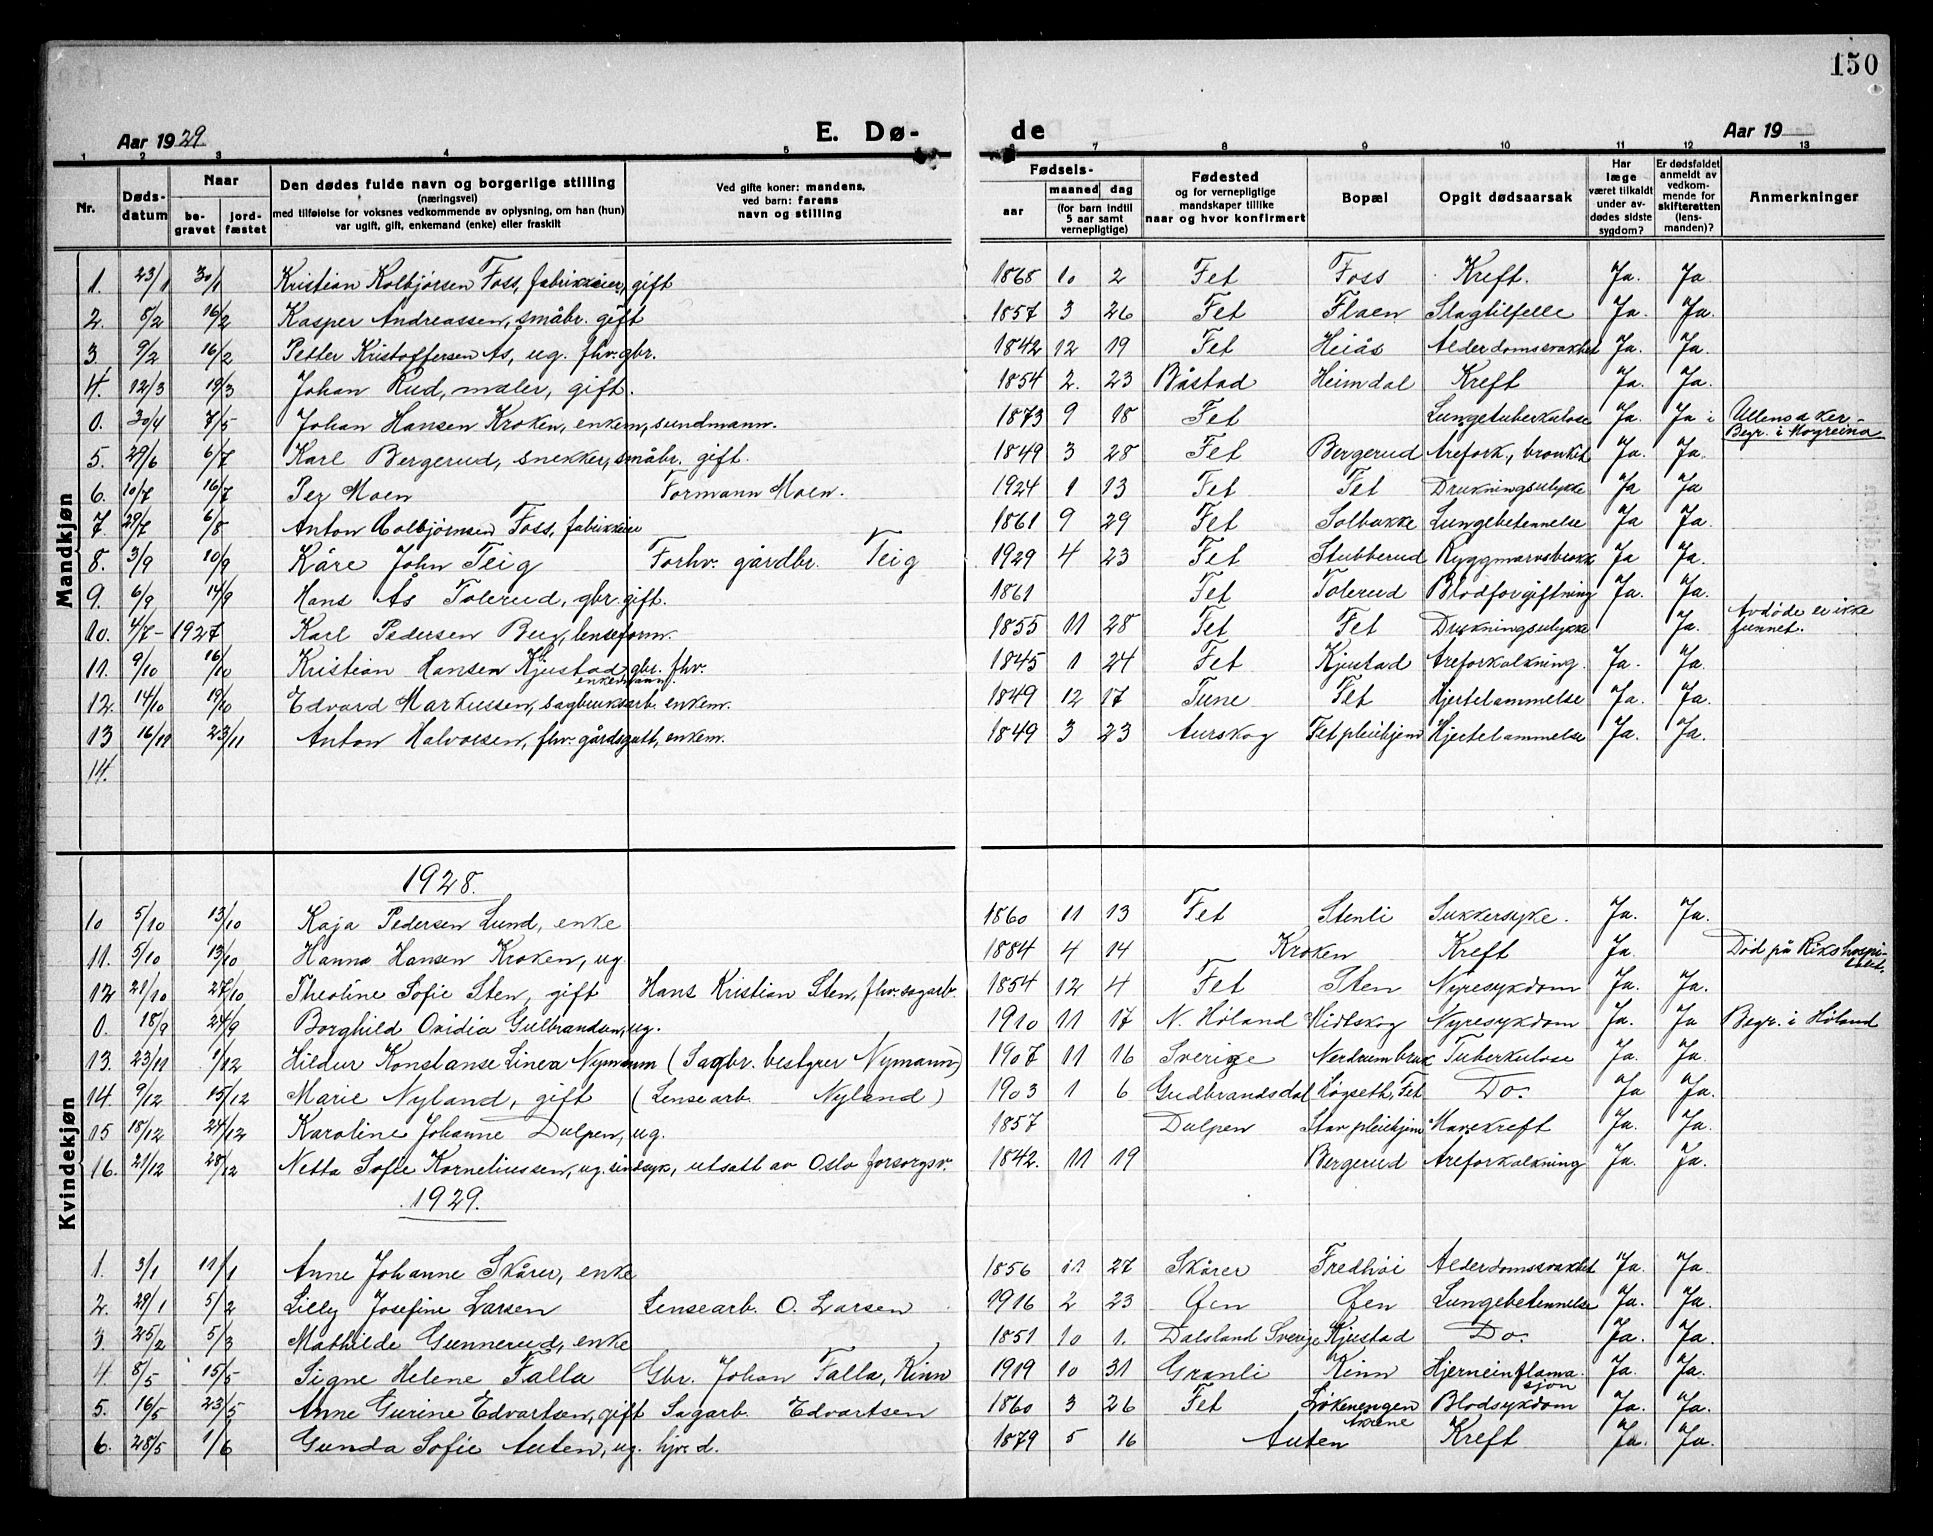 150
Aar 1929 E. Dø- de Aar 19
1 2 3 4 5 7 8 9 10 11 12 13
Nr. Døds-datum Naar be-gravet jord-fæstet Den dødes fulde navn og borgerlige stilling (næringsvei) med tilføielse for voksnes vedkommende av oplysning, om han (hun) var ugift, gift, enkemand (enke) eller fraskilt Ved gifte koner: mandens, ved barn: farens navn og stilling Fødsels- aar maaned dag (for barn indtil 5 aar samt vernepligtige) Fødested og for vernepligtige mandskaper tillike naar og hvor konfirmert Bopæl Opgit dødsaarsak Har læge været tilkaldt under av-dødes sidste sygdom? Er dødsfaldet anmeldt av vedkom-mende for skifteretten (lens-manden)? Anmerkninger
Mandkjøn
1. 23/1 30/1 Kristian Kolbjørsen Foss, fabrikkeier, gift 1868 10 2 Fet Foss Kreft. Ja. Ja.
2. 8/2 16/2 Kasper Andreassen, småbr. gift 1857 3 26 Fet Flaen Slagtilfelle Ja. Ja.
3. 9/2 16/2 Petter Kristoffersen Ås, ug. fhv. gbr. 1842 12 19 Fet Heiås Alderdomssvakhet Ja. Ja.
4. 12/3 19/3 Johan Rud, maler, gift. 1854 2. 23 Båstad Heimdal Kreft Ja. Ja.
0. 30/4 7/5 Johan Hansen Kroken, enkem, sundmann. 1873 9 18 Fet Lungetuberkulose Ja. Ja i Ullensaker - Begr. i Mogreina
5. 29/6 6/7 Karl Bergerud, snekker, småbr. gift. 1849 3 28 Fet Bergerud Årefork., bronkit Ja. Ja.
6. 10/7 16/7 Per Moen Formann Moen. 1924 1 13 Fet Fet Drukningsulykke Ja Ja
7. 29/7 6/8 Anton Kolbjørnsen Foss, fabrikkeier 1861 9 29 Fet Solbakke Lungebetennelse Ja Ja.
8. 3/9 10/9 Kåre John Teig Forhv. gårdbr. Teig 1929 4 23 Fet Stubberud Ryggmarvsbrokk Ja Ja.
9. 6/9 14/9 Hans Ås Tolerud, gbr. gift. 1861 Fet Tolerud Blodforgiftning Ja. Ja.
10. 4/7 - 1927 Karl Pedersen Berg, lenseform. 1855 11 28 Fet Fet Drukningsulykke Ja. Avdøde er ikke funnet.
11. 9/10 16/10 Kristian Hansen Kjustad gbr. fhv. enkemann. 1845 1 24 Fet Kjustad Åreforkalkning. Ja. Ja.
12. 14/10 19/10 Edvard Markussen, sagbruksarb. enkem. 1849 12 17 Tune Fet Hjertelammelse Ja. Ja.
13 16/11 23/11 Anton Halvorsen, fhv. gårdsgutt, enkem. 1849 3 23 Aurskog Fet pleiehjem Hjertelammelse Ja. Ja.
14.
Kvindekjøn
1928.
10 5/10 13/10 Kaja Pedersen Lund, enke 1860 11 13 Fet Stenli Sukkersyke. Ja. Ja.
11. 5/10 13/10 Hanna Hansen Kroken, ug. 1884 4 14 Kroken Kreft Ja. Død på Rikshospitalet.
12 21/10 27/10 Theoline Sofie Sten, gift Hans Kristian Sten, fhv. sagarb. 1854 12 4 Fet Sten Nyresykdom Ja. Ja.
0. 18/9 24/9 Borghild Ovidia Gulbrandsen, ug. 1910 11 17 N. Høland Hidtskog Nyresykdom Ja. Ja Begr. i Høland
13. 23/11 1/12 Hildur Konstanse Linea Nymann (Sagbr. bestyrer Nymann) 1907 11 16 Sverige Nerdrum bruk Tuberkulose Ja. Ja.
14. 9/12 15/12 Marie Nyland, gift (Lensearb. Nyland) 1903 1 6 Gudbrandsdal Løgseth, Fet Do. Ja Ja.
15 18/12 24/12 Karoline Johanne Dalpen, ug. 1857 Dalpen Stav pleiehjem Mavekreft Ja. Ja.
16. 21/12 28/12 Netta Sofie Korneliussen, ug. sinssyk, utsatt av Oslo forsorgsv. 1842. 11 19 Bergerud Åreforkalkning Ja. Ja.
1929.
1. 3/1 11/1 Anne Johanne Skårer, enke 1856 11 27 Skårer Fredhøi Alderdomssvakhet Ja Ja.
2. 29/1 5/2 Lilly Josefine Larsen Lensearb. O. Larsen 1916 2 23 Øen Øen Lungebetennelse Ja. Ja.
3. 25/2 5/3 Mathilde Gunnerud, enke 1851 10 1. Dalsland Sverige Kjustad Do. Ja. Ja.
4 8/5 15/5 Signe Helene Falla Gbr. Johan Falla, Kinn 1919 10 31 Granli Kinn Hjerneinflamasjon Ja. Ja.
5. 16/5 23/5 Anne Gurine Edvartsen, gift Sagarb. Edvartsen 1860 3 26 Fet Løkenengen Blodsykdom Ja. Ja.
6. 28/5 1/6 Gunda Sofie Auten, ug. hjv. d. 1879 5 16 Auten Kreft Ja. Ja.